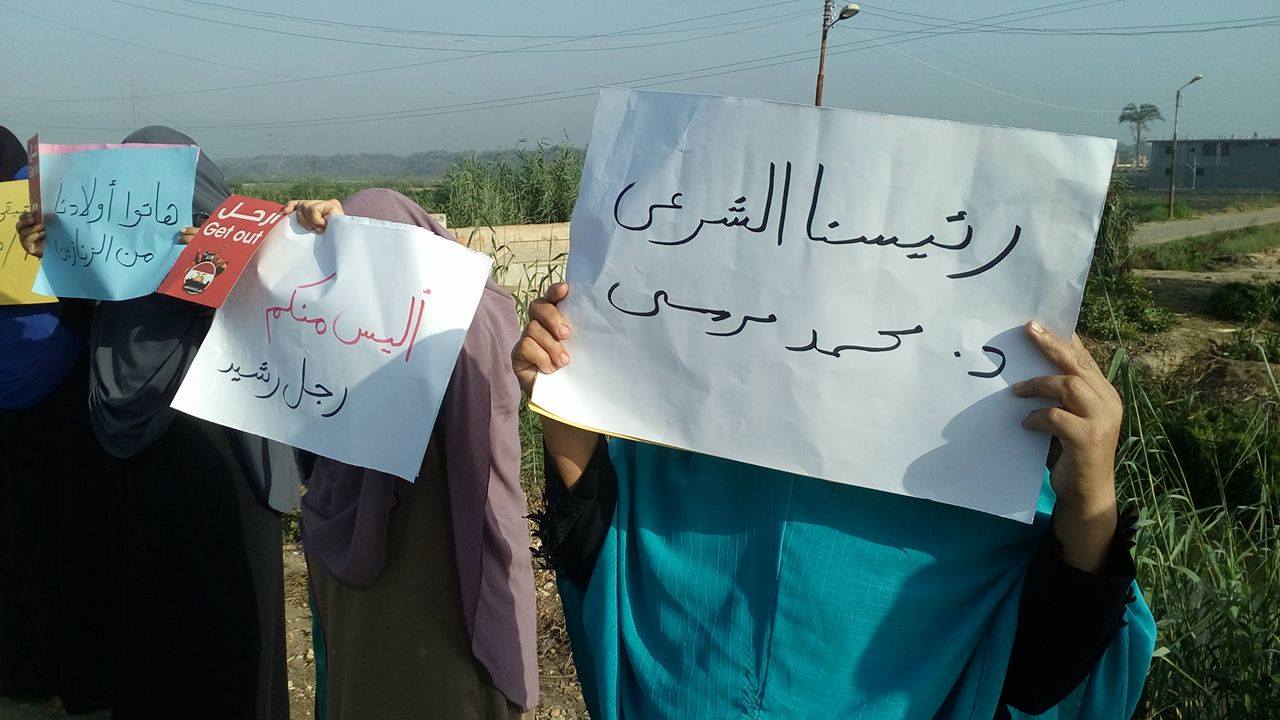 رئيسنا الشرعى
د. محمد مرسى
أليس منكم
رجل رشيد
ارحل
Get out
هاتوا أولادنا
من الزنازين